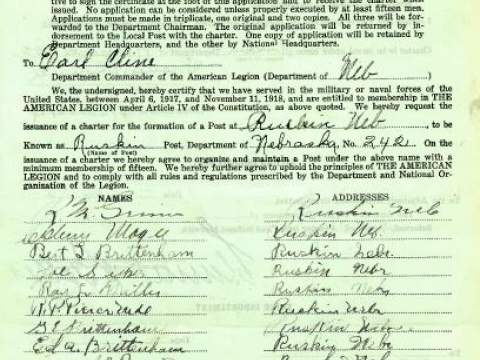 tive to sign the certificate at the foot of this application and to receive the charter when
issued. No application can be considered unless properly executed by at least fifteen men.
Applications must be made in triplicate, one original and two copies. All three will be for-
warded to the Department Chairman. The original application will be returned by in-
dorsement to the Local Post with the charter. One copy of application will be retained by
Department Headquarters, and the other by National Headquarters.
To Earl Cline
Department Commander of the American Legion (Department of Neb)
We, the undersigned, hereby certify that we have served in the military or naval forces of the
United States, between April 6, 1917, and November 11, 1918, and are entitled to membership in THE
AMERICAN LEGION under Article IV of the Constitution, as above quoted. We hereby request
issuance of charter for the formation of a Post at Ruskin Neb, to be
Known as Ruskin Post, Department of Nebraska, No. 242. On the
(Name of Post)
issuance of a charter we hereby agree to organize and maintain a Post under the above name with a
minimum membership of fifteen. We hereby further agree to uphold the principles of THE AMERICAN
LEGION and to comply with all rules and regulations prescribed by the Department and National Or-
ganization of the Legion.
NAMES ADDRESSES
Ruskin Neb
Magee Ruskin Neb.
Bert L Brittenham Ruskin Nebr.
Ruskin Nebr
Ray Ruskin Nebr
Ruskin Nebr
Brittenham Ruskin Nebr
Ed. A. Brittenham Ruskin Nebr